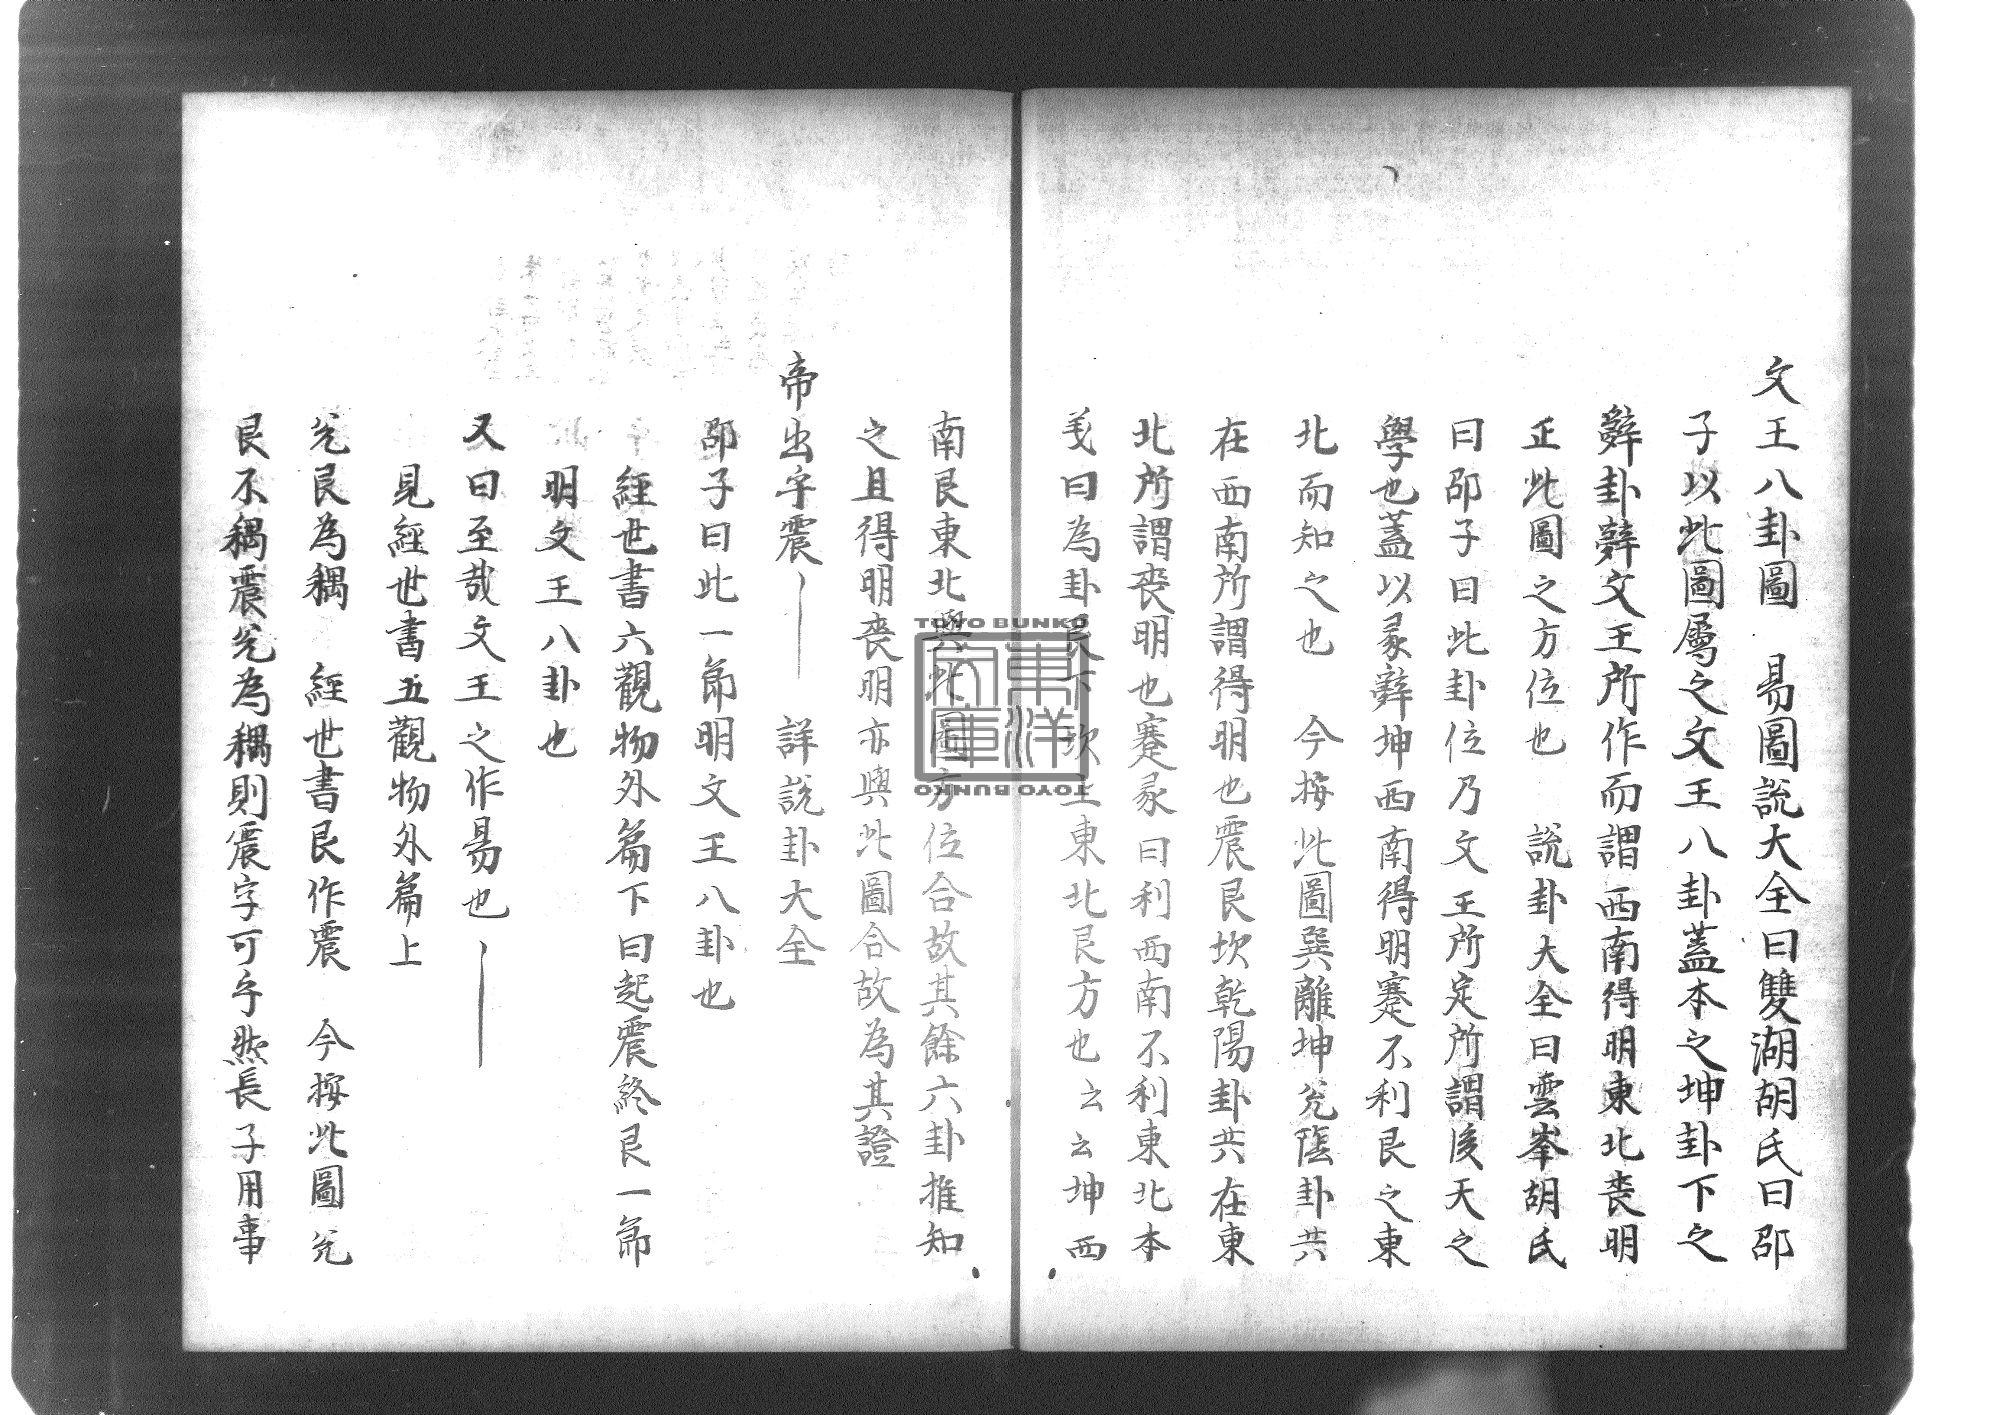 文王八卦圖　易圖說大全曰雙湖胡氏曰邵
子以此圖屬之文王八卦蓋本之坤卦下之
辭卦辭文王所作而謂西南得明東北喪明
正此圖之方位也　說卦大全曰雲峯胡氏
曰邵子曰此卦位乃文王所定所謂後天之
學也蓋以彖辭坤西南得明蹇不利艮之東
北而知之也　今按此圖巽離坤兊陰卦共
在西南所謂得明也震艮坎乾陽卦共在東
北所謂喪明也蹇彖曰利西南不利東北本
義曰為卦艮下坎上東北艮方也云云坤西
南艮東北與此圖方位合故其餘六卦推知
之且得明喪明亦與此圖合故為其證
帝出乎震――　詳說卦大全
邵子曰此一節明文王八卦也
經世書六觀物外篇下曰起震終艮一節
明文王八卦也
又曰至哉文王之作易也――
見經世書五觀物外篇上
兊艮為耦　經世書艮作震　今按此圖兊
艮不耦震兊為耦則震字可乎然長子用事
TOYO BUNKO
東洋文庫
TOYO BUNKO